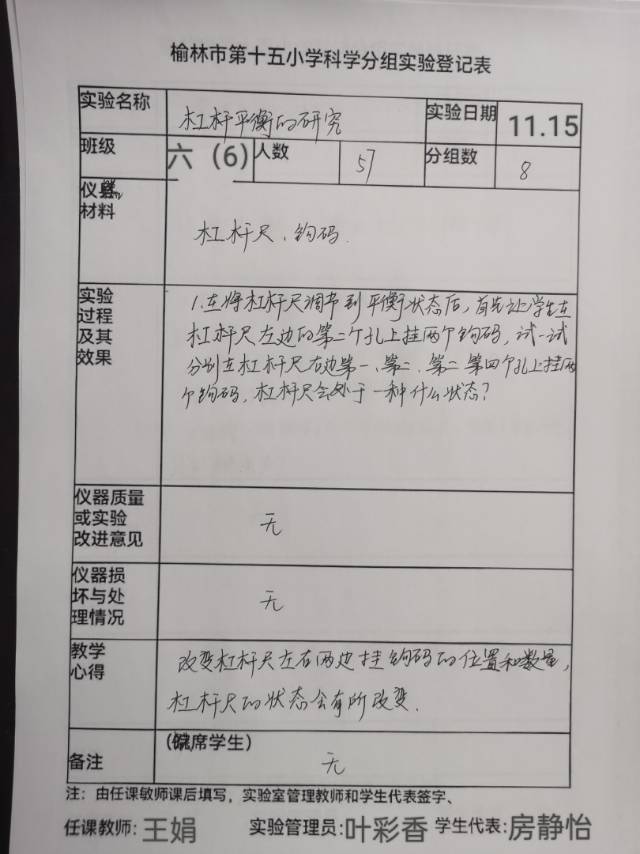 榆林市第十五小学科学分组实验登记表
实验名称 杠杆平衡的研究 实验日期 11.15
班级 六（6） 人数 57 分组数 8
仪器
材料
杠杆尺、钩码.
实验
过程
及其
效果
1.在将杠杆尺调节到平衡状态后，首先让学生在
杠杆尺左边的第二个孔上挂两个钩码，试一试
分别在杠杆尺右边第一、第二、第二第四个孔上挂两
个钩码，杠杆尺会处于一种什么状态？
仪器质量
或实验
改进意见
无
仪器损
坏与处
理情况
无
教学
心得
改变杠杆尺左右两边挂钩码的位置和数量，
杠杆尺的状态会有所改变.
备注
(缺席学生)
无
注：由任课敏师课后填写，实验室管理教师和学生代表签字、
任课教师: 王娟 实验管理员: 叶彩香 学生代表: 房静怡